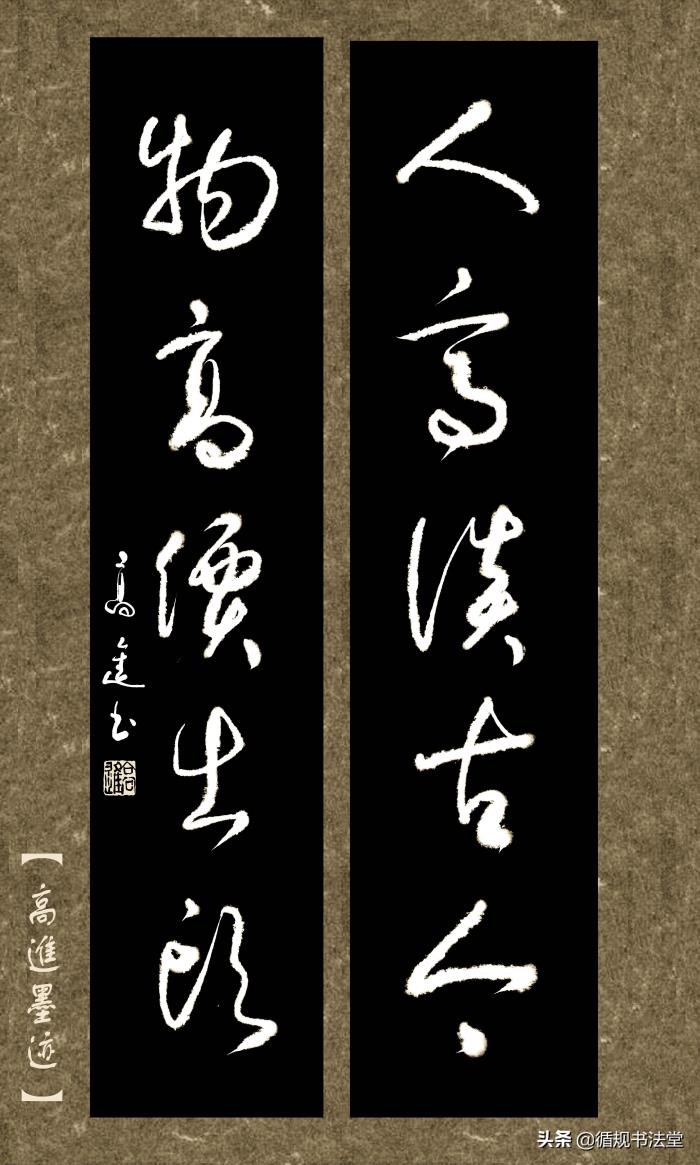 人高谈古今
物高價出頭
高進书
【高進墨迹】
头条 @循规书法堂